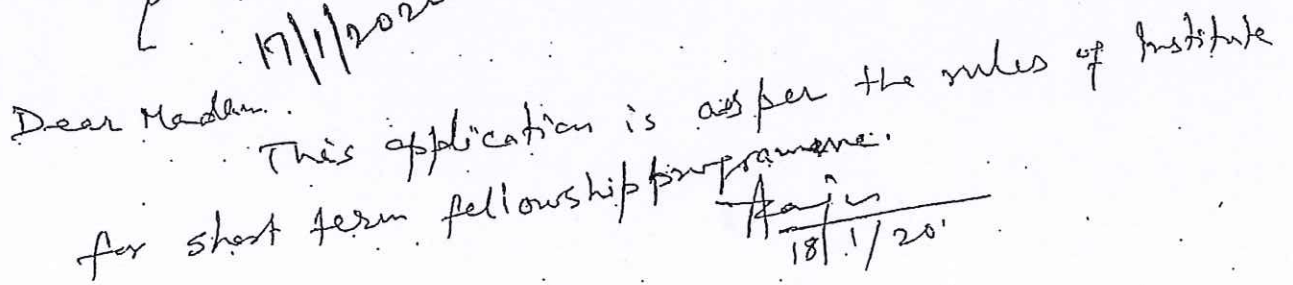 17/1/202
Dear Madam.
This application is as per the rules of Institute
for short term fellowship programme.
18/1/20